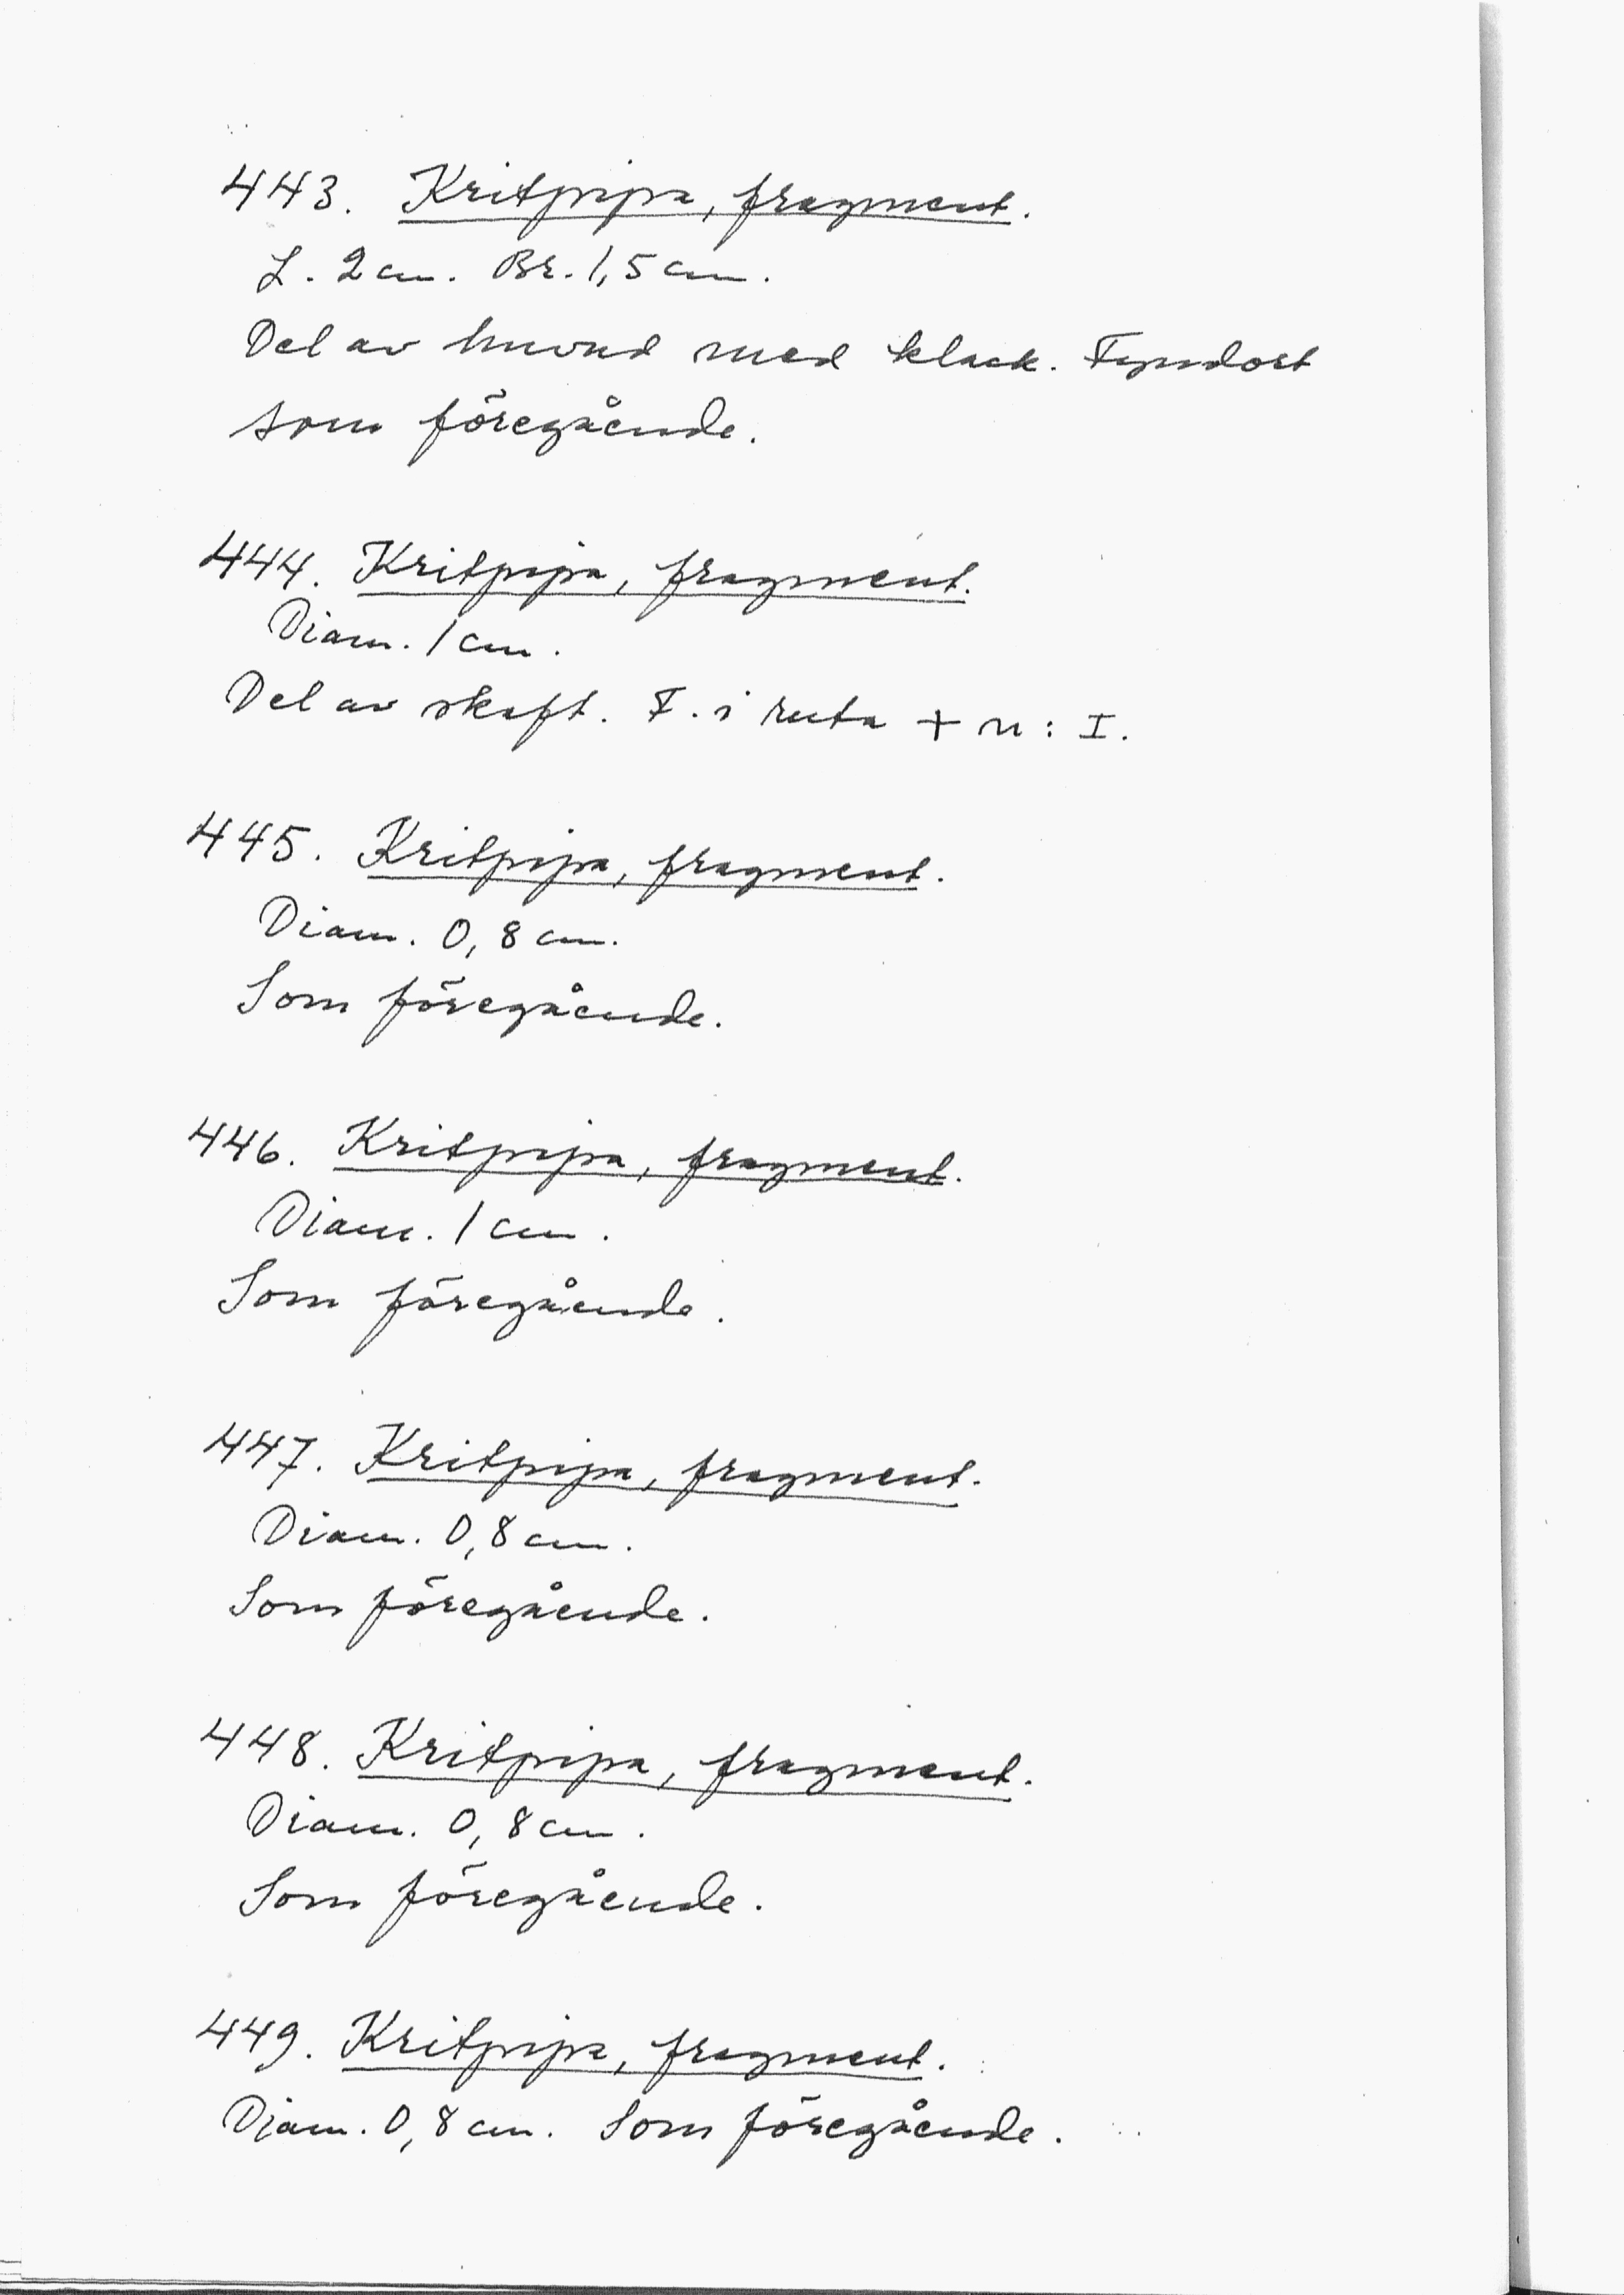 443. Kritpipa, fragment.
L. 2 cm. Br. 1,5 cm.
Del av huvud med klack. Fyndort
som föregående.
444. Kritpipa, fragment.
Diam. 1 cm.
Del av skaft. F. i ruta + n : I.
445. Kritpipa, fragment.
Diam. 0,8 cm.
Som föregående.
446. Kritpipa, fragment.
Diam. 1 cm.
Som föregående.
447. Kritpipa, fragment.
Diam. 0,8 cm.
Som föregående.
448. Kritpipa, fragment.
Diam. 0,8 cm.
Som föregående.
449. Kritpipa, fragment.
Diam. 0,8 cm. Som föregående.